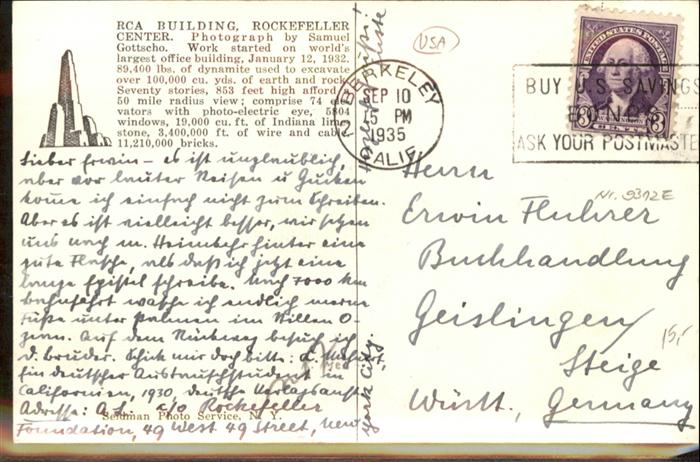 RCA BUILDING, ROCKEFELLER
CENTER. Photograph by Samuel
Gottscho. Work started on world's
largest office building, January 12, 1932.
89,400 lbs. of dynamite used to excavate
over 100,000 cu. yds. of earth and rock
Seventy stories, 853 feet high afford
50 mile radius view; comprise 74 ele-
vators with photo-electric eye, 5804
windows, 19,000 cu. ft. of Indiana lime-
stone, 3,400,000 ft. of wire and cable
11,210,000 bricks.
USA
BERKELEY
SEP 10
5 PM
1935
CALIF.
BUY U.S. SAVINGS
BONDS
ASK YOUR POSTMASTE
UNITED STATES POSTAGE
3 CENTS 3
Lieber Erwin – es ist unglaublich,
aber vor lauter Reisen u Gucken
komme ich einfach nicht zum Schreiben.
Aber es ist vielleicht besser, wir setzen
uns nach m. Heimkehr hinter eine
gute Flasche, als daß ich jetzt eine
lange Epistel schreibe. Nach 7000 km
Bahnfahrt wasche ich endlich meine
Füße unter Palmen im Stillen O-
zean. Auf dem Rückweg besuch ich
d. Bruder. Schick mir doch bitte:
Ein deutscher Austauschstudent in
Californien, 1930, deutsche Verlagsanst.
Adresse: c/o Rockefeller
Foundation, 49 West 49 Street, New
York City.
Seidman Photo Service, N. Y.
Herrn
Erwin Fluhrer
Nr. 9312E
Buchhandlung
Geislingen/
Steige
15,-
Württ., Germany